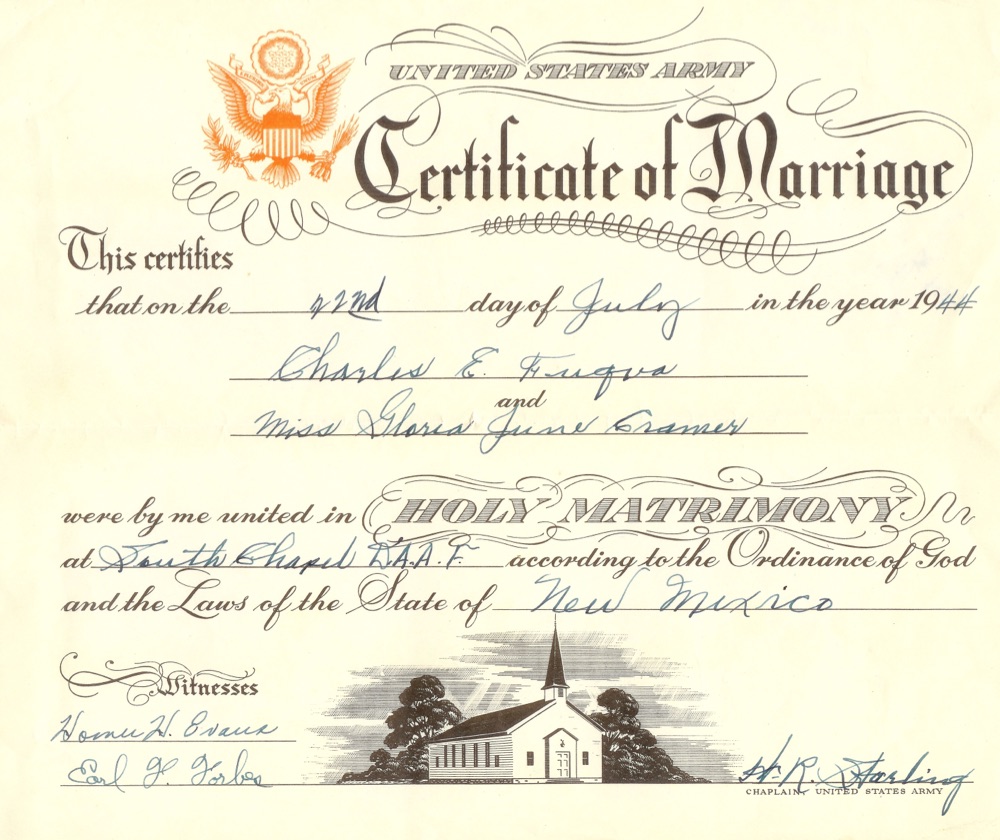 UNITED STATES ARMY
Certificate of Marriage
This certifies
that on the 22nd day of July in the year 1944
Charles E. Fuqua
and
Miss Gloria June Cramer
were by me united in HOLY MATRIMONY
at South Chapel D.A.A.F. according to the Ordinance of God
and the Laws of the State of New Mexico
Witnesses
Homer H. Evans
Earl F. Forbes
H. R. Starling
CHAPLAIN, UNITED STATES ARMY